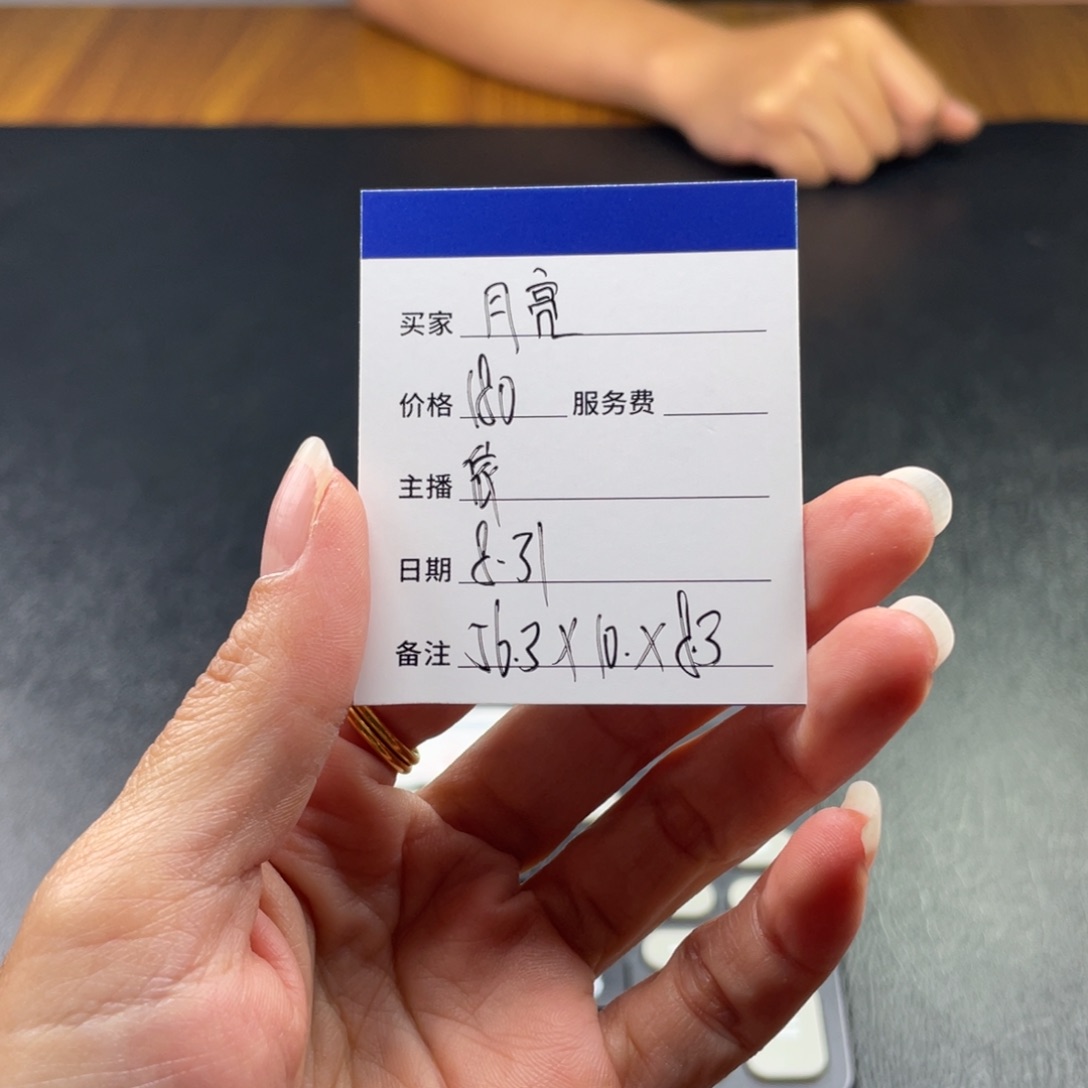 买家 月亮
价格 180 服务费
主播
日期 8.31
备注 56.3×10.×8.3